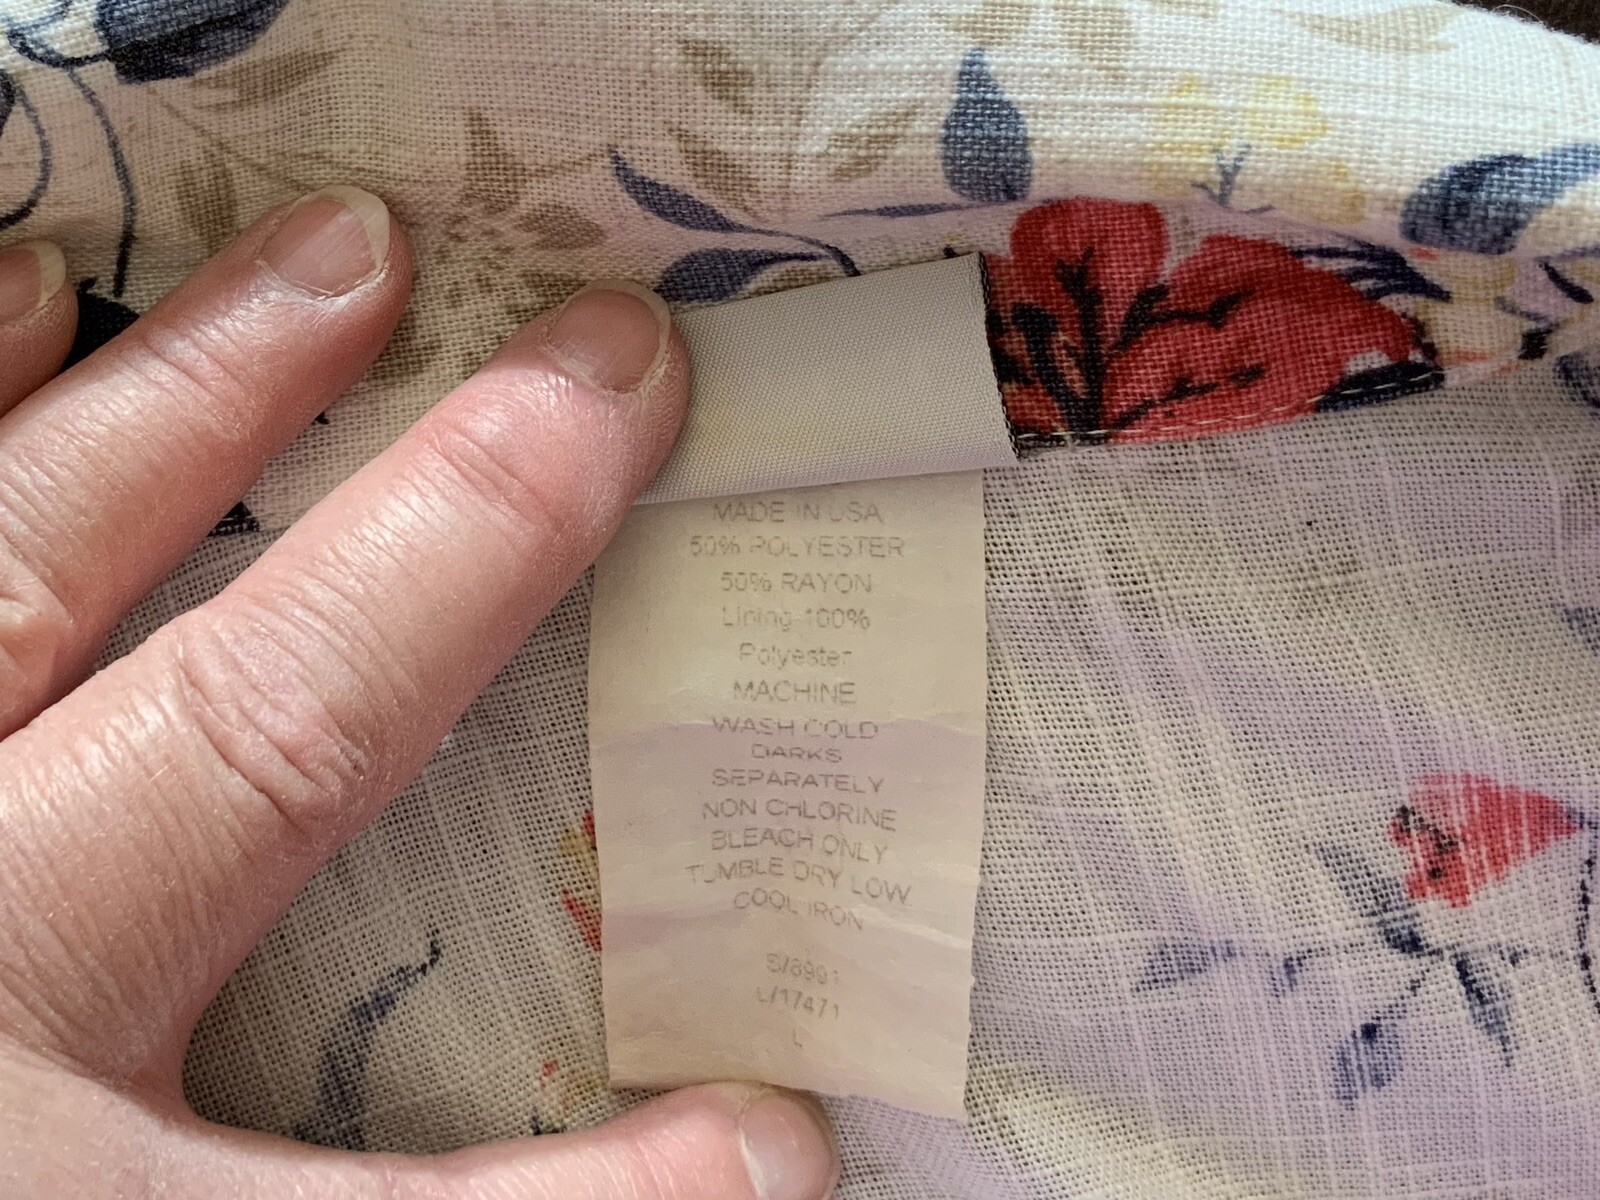 MADE IN USA
50% POLYESTER
50% RAYON
Lining 100%
Polyester
MACHINE
WASH COLD
DARKS
SEPARATELY
NON CHLORINE
BLEACH ONLY
TUMBLE DRY LOW
COOL IRON
S/8991
L/17471
L